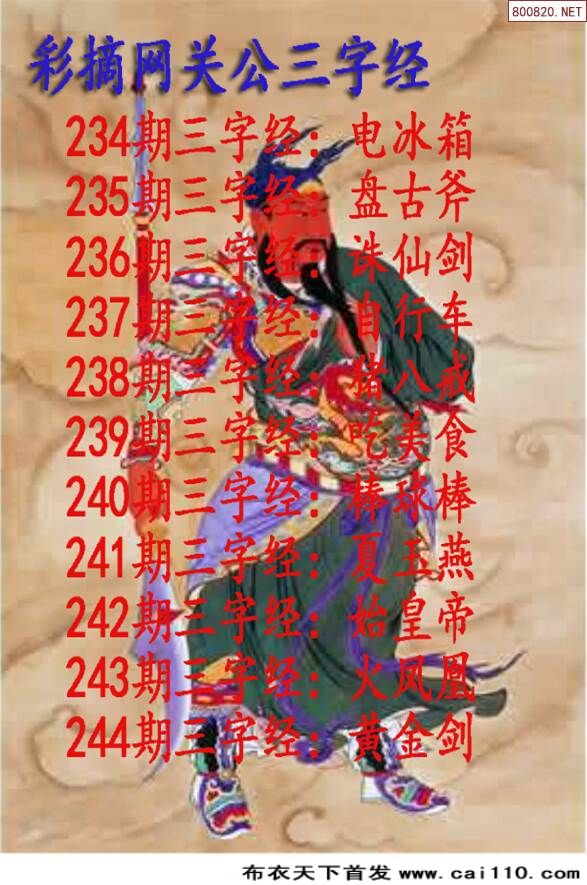 800820.NET
彩摘网关公三字经
234期三字经：电冰箱
235期三字经：盘古斧
236期三字经：诛仙剑
237期三字经：自行车
238期三字经：猪八戒
239期三字经：吃美食
240期三字经：棒球棒
241期三字经：夏玉燕
242期三字经：始皇帝
243期三字经：火凤凰
244期三字经：黄金剑
布衣天下首发 www.cai110.com